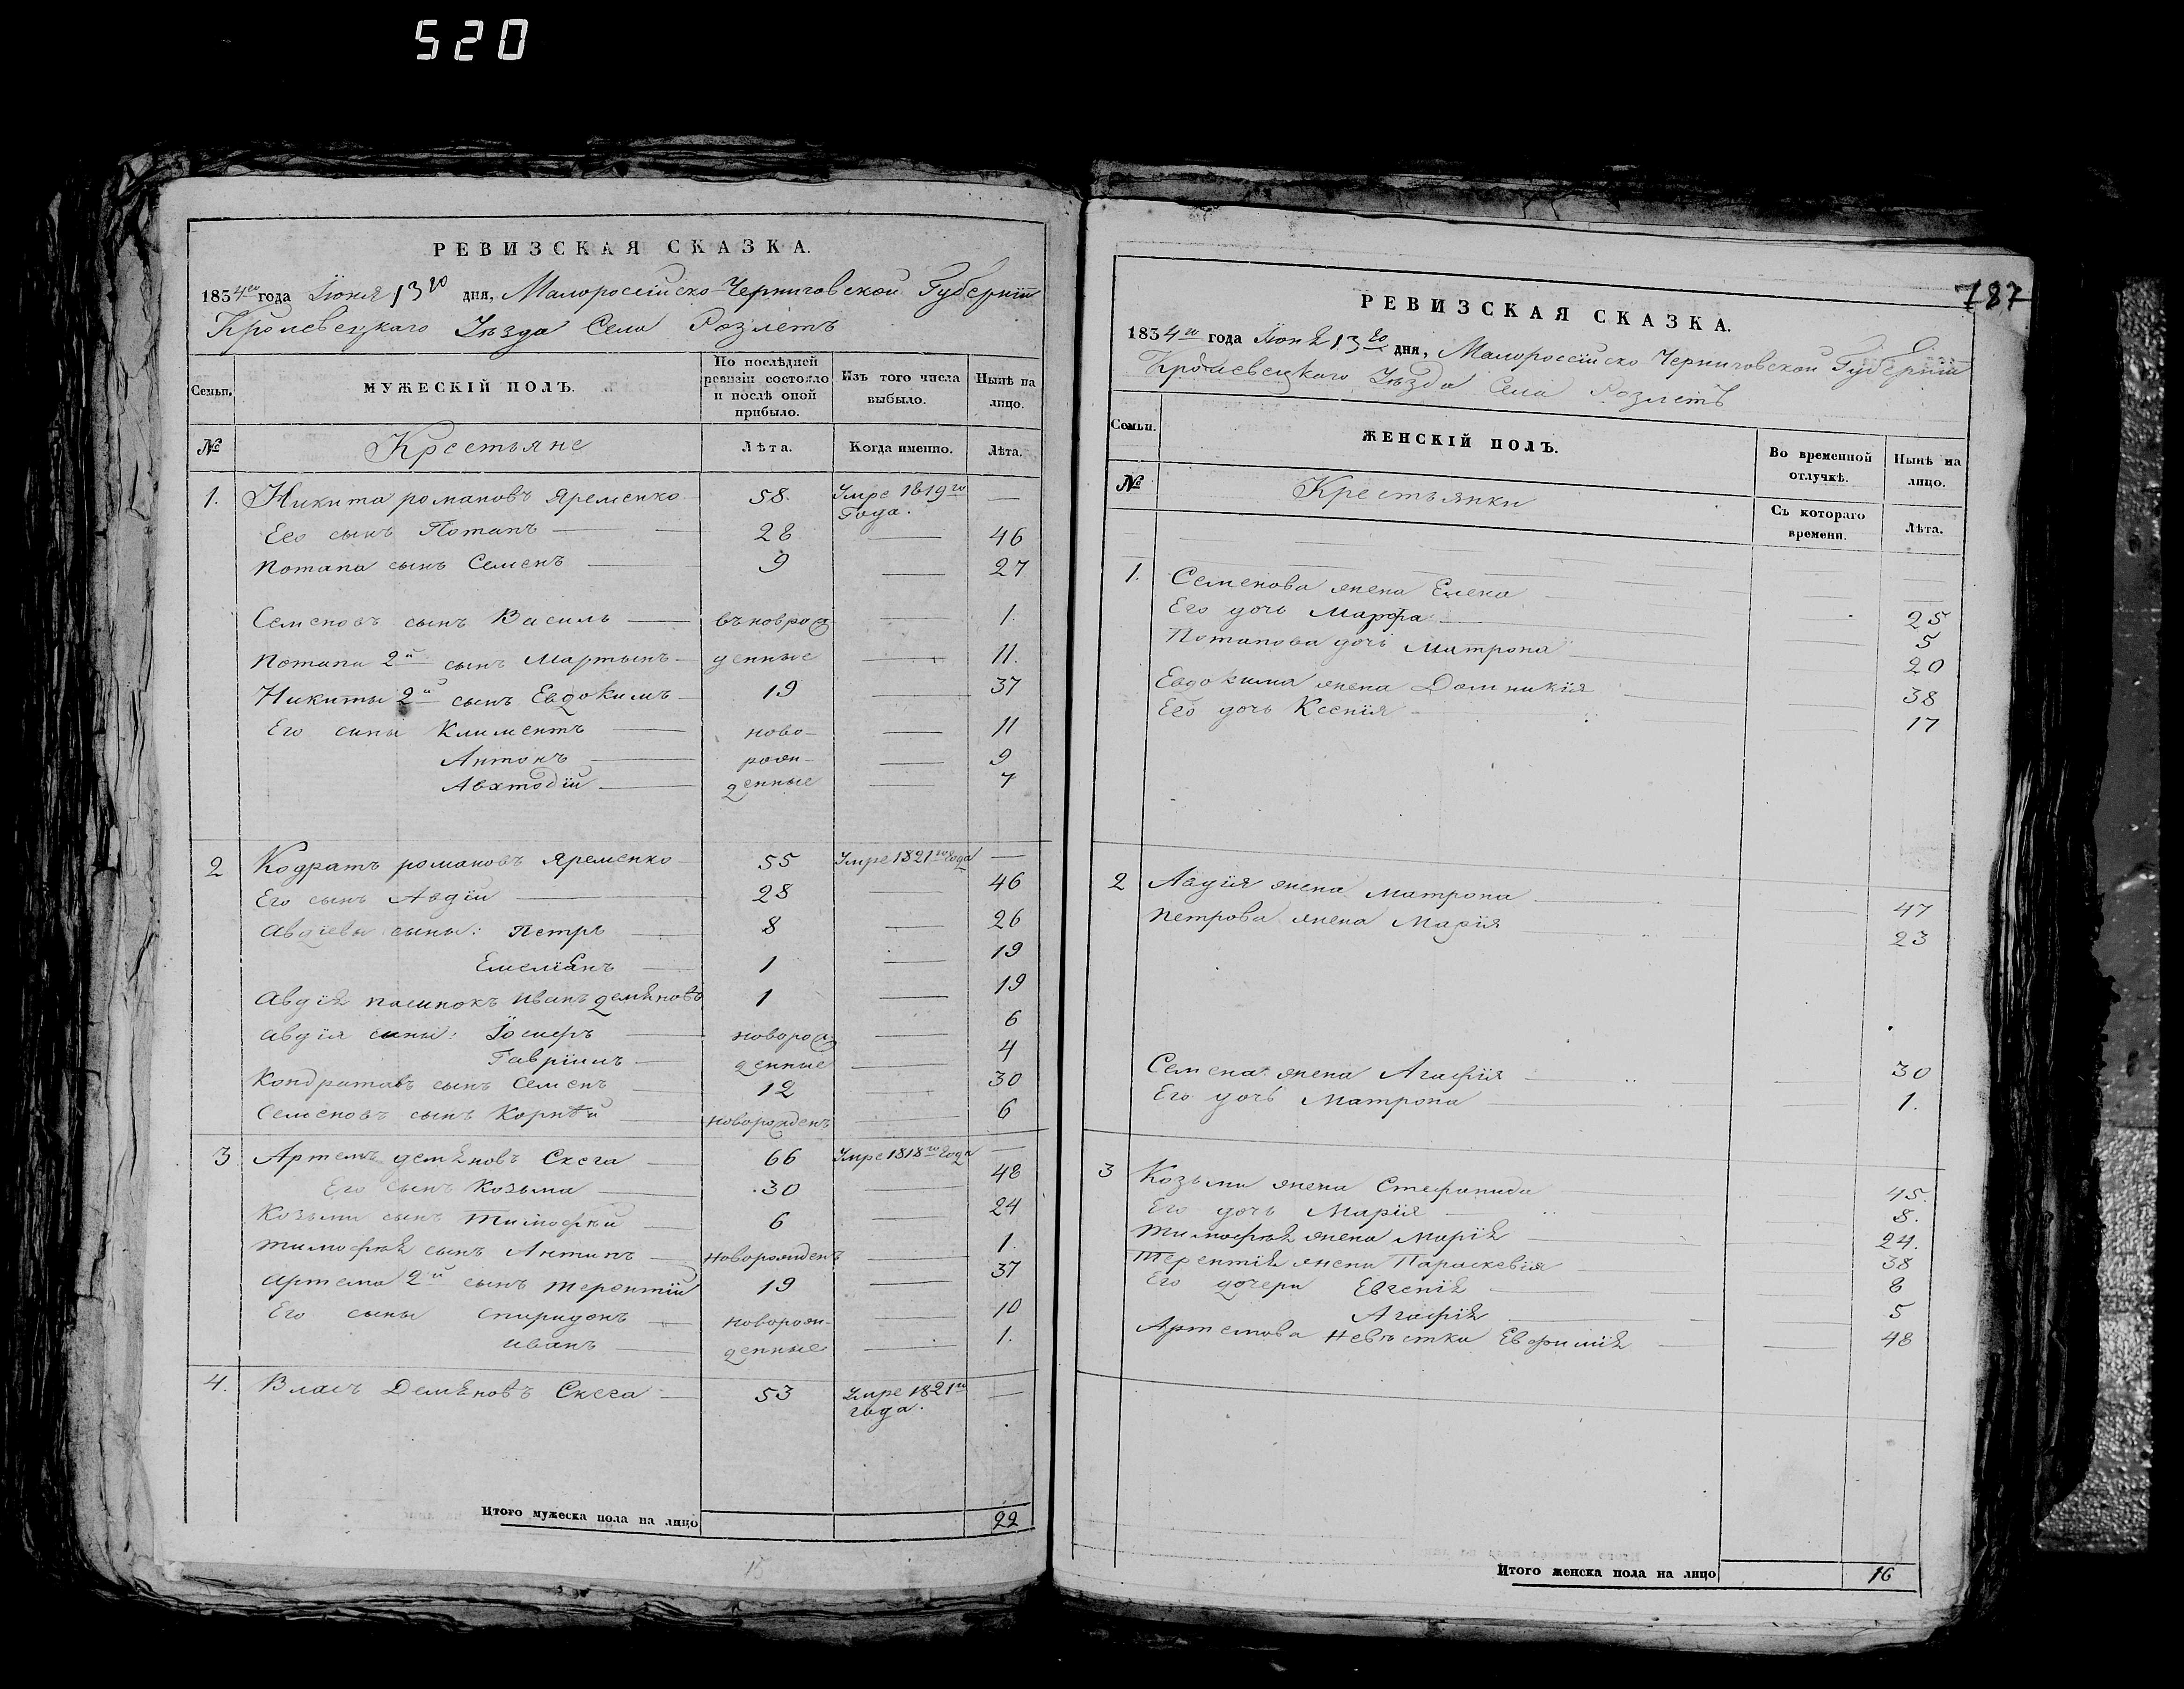 520
РЕВИЗСКАЯ СКАЗКА.
1834го года Іюня 13го дня, Малороссійско-Черниговской Губерніи
Кролевецкаго Уѣзда Села Розлетъ
Семьи. МУЖЕСКІЙ ПОЛЪ. По послѣдней ревизіи состояло и послѣ оной прибыло. Изъ того числа выбыло. Нынѣ на лицо.
№ Крестьяне Лѣта. Когда именно. Лѣта.
1. Никита романовъ Яременко 58. Умре 1819го Года. —
Его сынъ Потапъ — 28 — 46
Потапа сынъ Семенъ — 9 — 27
Семеновъ сынъ Василь — въ новрож — 1.
Потапа 2й сынъ Мартынъ — денные — 11.
Никиты 2й сынъ Евдокимъ — 19 — 37
Его сины Климентъ — ново- — 11
Антонъ — рожн- — 9
Авхтодій — денные — 7
2 Кодратъ романовъ Яременко 55 Умре 1821го Года —
Его сынъ Авдій — 28 — 46
Авдіевы сыны: Петръ — 8 — 26
Емеліянъ — 1 — 19
Авдія пасинокъ Иванъ демяновъ 1 — 19
Авдія сины: Іосифъ — новорож — 6
Гавріилъ — денные — 4
Кондратовъ сынъ Семенъ — 12 — 30
Семеновъ сынъ Корнѣй — новорожденъ — 6
3 Артемъ демяновъ Скега — 66 Умре 1818го Года —
Его сынъ Козьма — 30 — 48
Козьми сынъ Тимофѣй — 6 — 24
Тимофѣя сынъ Антипъ — новорожденъ — 1.
Артема 2й сынъ Терентій 19 — 37
Его сыны спиридонъ — новорожн- — 10
иванъ — денные — 1.
4. Власъ Демяновъ Скега — 53 Умре 1821го года. —
Итого мужеска пола на лицо 22
15
787
РЕВИЗСКАЯ СКАЗКА.
1834го года Іюня 13го дня, Малороссійско Черниговской Губерніи
Кролевецкаго Уѣзда Села Розлетъ
Семьи. ЖЕНСКІЙ ПОЛЪ. Во временной отлучкѣ. Нынѣ на лицо.
№ Крестьянки Съ котораго времени. Лѣта.
1. Семенова жена Елена — 25
Его дочь Марфа — 5
Потапова дочь Матрона — 20
Евдокима жена Домникія — 38
Его дочь Ксенія — 17
2 Авдія жена Матрона — 47
Петрова жена Марія — 23
Семена жена Агафія — 30
Его дочь Матрона — 1.
3 Козьми жена Стефанида — 45.
Его дочь Марія — 8.
Тимофѣя жена Марія — 24.
Терентія жена Параскевія — 38
Его дочери Евгенія — 8
Агафія — 5
Артемова невѣстка Евфимія — 48
Итого женска пола на лицо 16